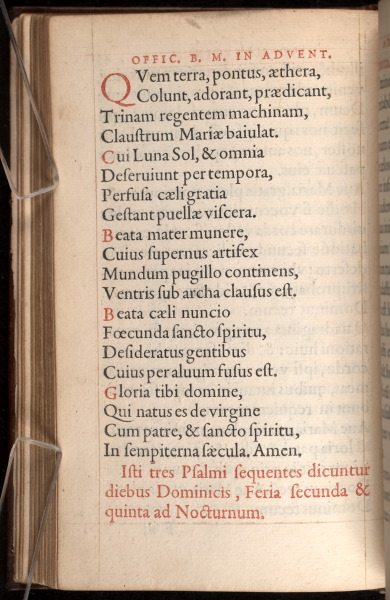 OFFIC. B. M. IN ADVENT.
QVem terra, pontus, æthera,
Colunt, adorant, prædicant,
Trinam regentem machinam,
Clauſtrum Mariæ baiulat.
Cui Luna Sol, & omnia
Deſeruiunt per tempora,
Perfuſa cæli gratia
Geſtant puellæ viſcera.
Beata mater munere,
Cuius ſupernus artifex
Mundum pugillo continens,
Ventris ſub archa clauſus eſt.
Beata cæli nuncio
Fœcunda ſancto ſpiritu,
Deſideratus gentibus
Cuius per aluum fuſus eſt.
Gloria tibi domine,
Qui natus es de virgine
Cum patre, & ſancto ſpiritu,
In ſempiterna ſæcula. Amen.
Iſti tres Pſalmi ſequentes dicuntur
diebus Dominicis, Feria ſecunda &
quinta ad Nocturnum.